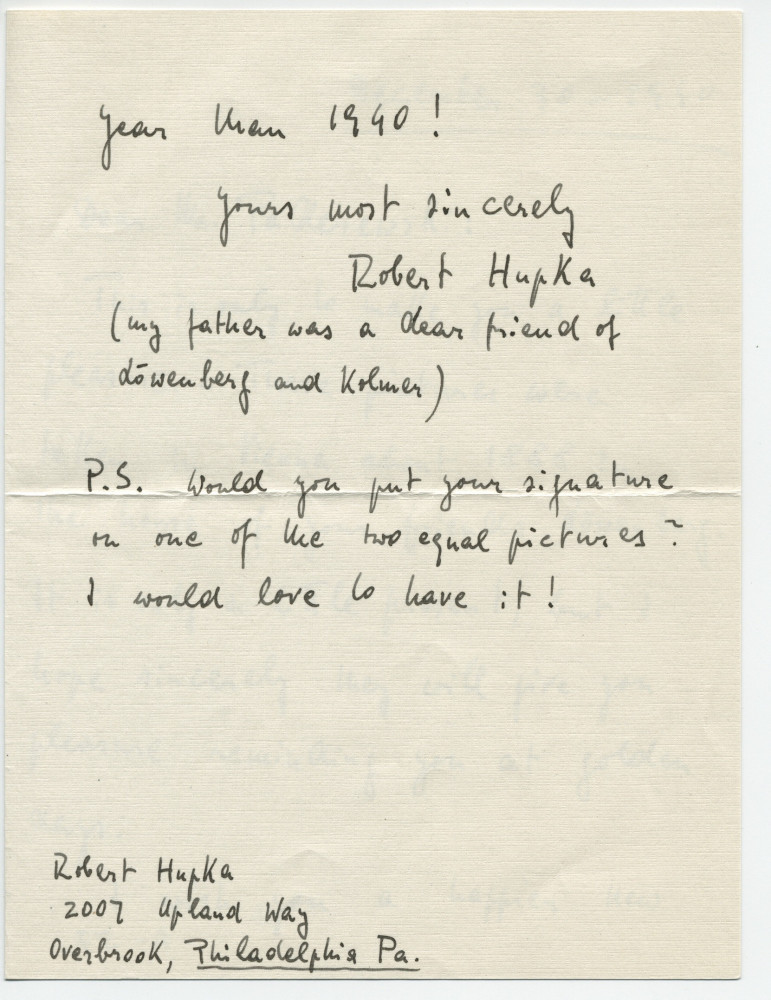 year than 1940!
yours most sincerely
Robert Hupka
(my father was a dear friend of
Löwenberg and Kolmer)
P.S. Would you put your signature
on one of the two equal pictures?
I would love to have it!
Robert Hupka
2007 Upland Way
Overbrook, Philadelphia Pa.